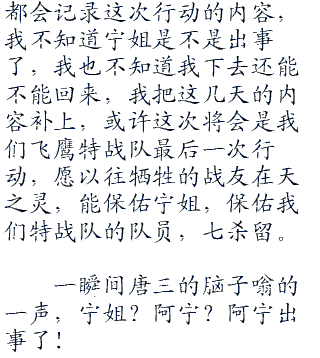 都会记录这次行动的内容，
我不知道宁姐是不是出事
了，我也不知道我下去还能
不能回来，我把这几天的内
容补上，或许这次将会是我
们飞鹰特战队最后一次行
动，愿以往牺牲的战友在天
之灵，能保佑宁姐，保佑我
们特战队的队员，七杀留。
一瞬间唐三的脑子嗡的
一声，宁姐？阿宁？阿宁出
事了！